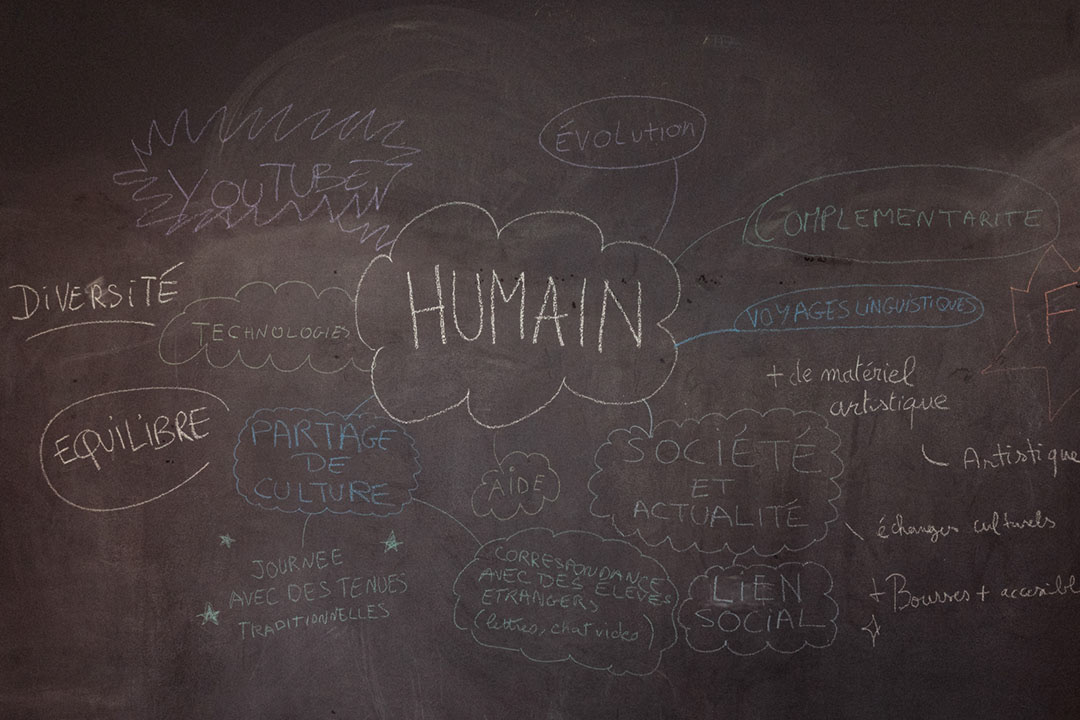 ÉVOLUTION
YOUTUBE
COMPLEMENTARITE
DIVERSITÉ
TECHNOLOGIES
HUMAIN
VOYAGES LINGUISTIQUES
F
+ de matériel
artistique
EQUILIBRE
PARTAGE
DE
CULTURE
AIDE
SOCIÉTÉ
ET
ACTUALITÉ
Artistique
échanges culturels
JOURNEE
AVEC DES TENUES
TRADITIONNELLES
CORRESPONDANCE
AVEC DES ELEVES
ETRANGERS
(lettres, chat video)
LIEN
SOCIAL
+ Bourses + accesibl